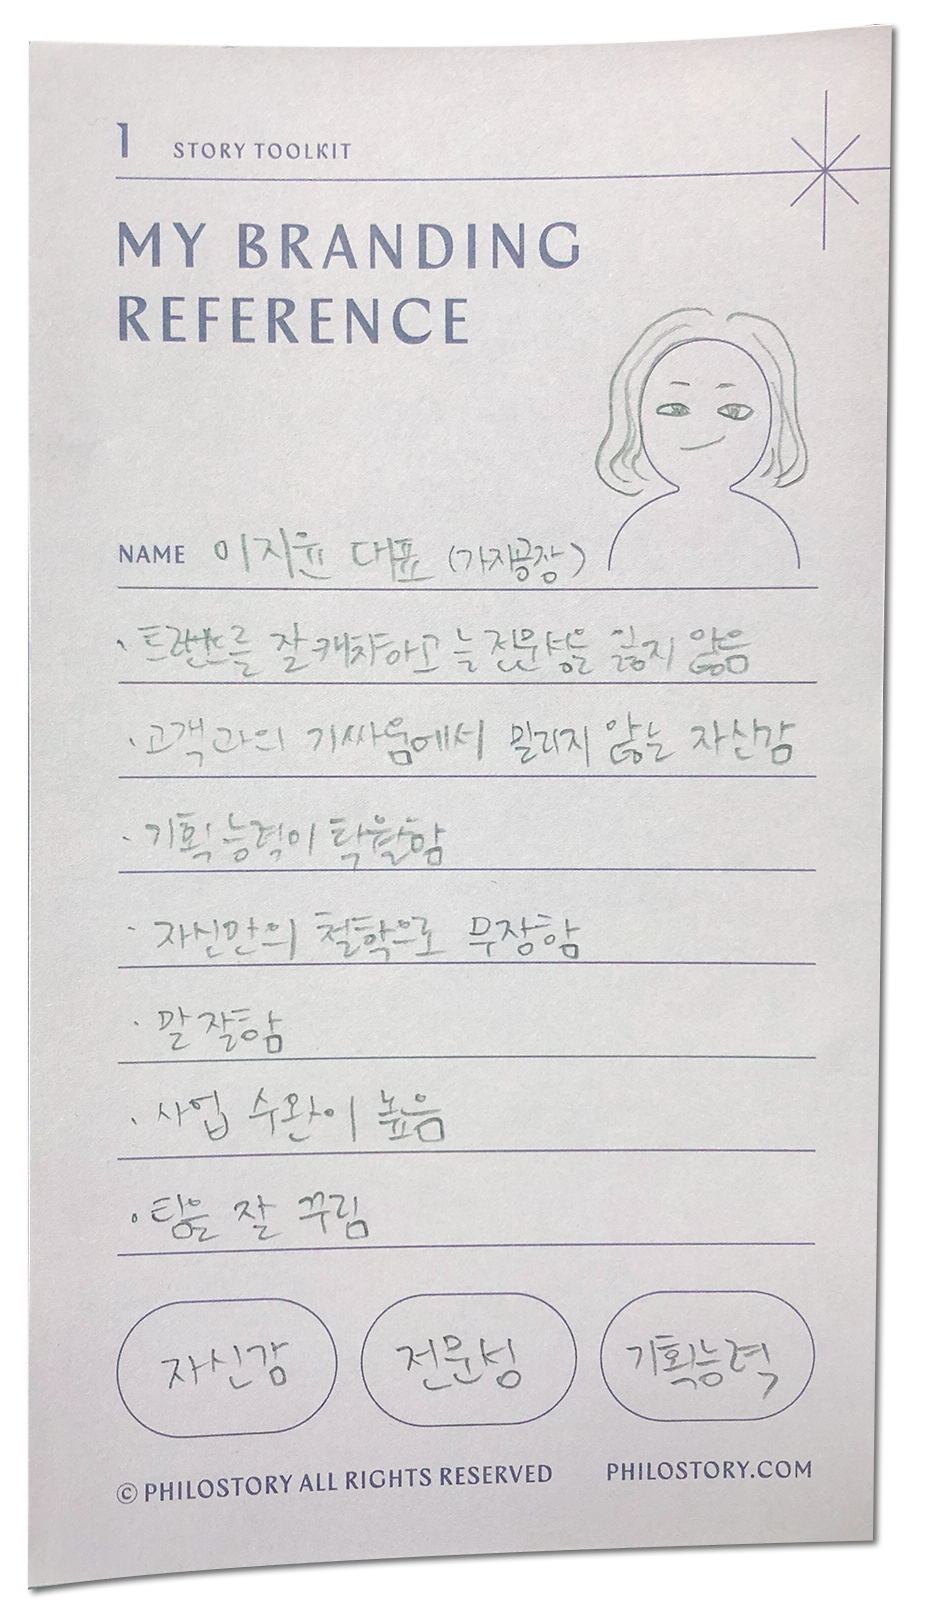 1 STORY TOOLKIT
MY BRANDING
REFERENCE
NAME 이지윤 대표 (가지공장)
· 트랜드를 잘 캐치하고 늘 전문성을 잃지 않음
· 고객과의 기싸움에서 밀리지 않는 자신감
· 기획능력이 탁월함
· 자신만의 철학으로 무장함
· 말 잘함
· 사업 수완이 높음
· 팀을 잘 꾸림
자신감 전문성 기획능력
© PHILOSTORY ALL RIGHTS RESERVED PHILOSTORY.COM